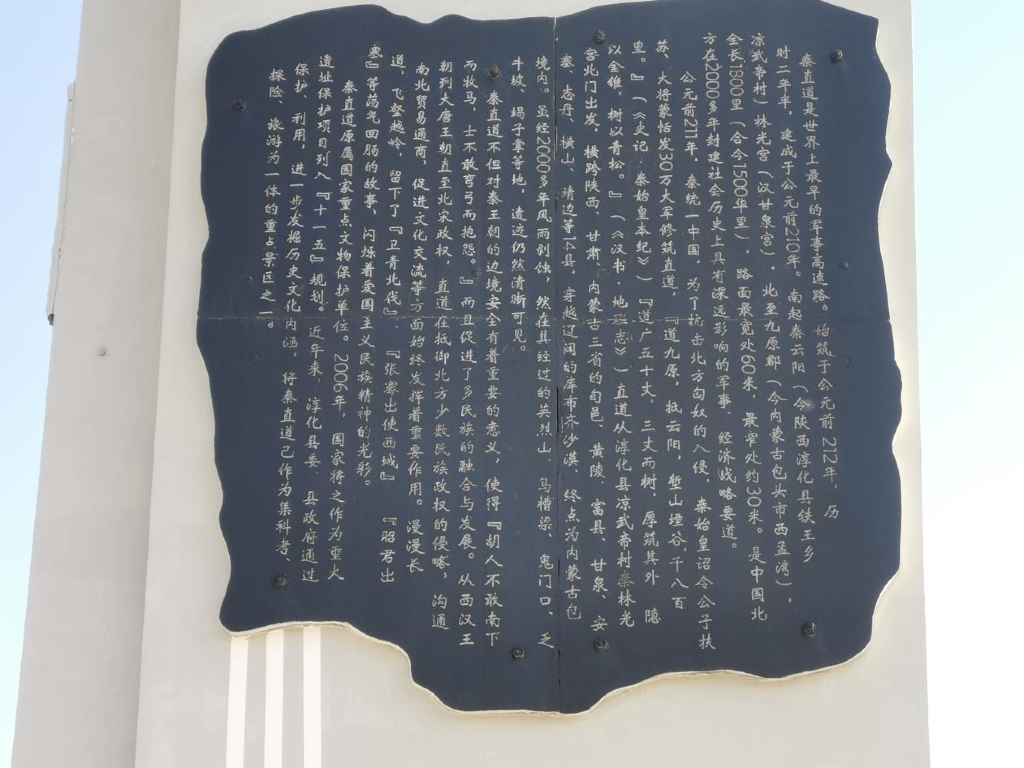 秦直道是世界上最早的军事高速路。始筑于公元前212年，历
时二年半，建成于公元前210年。南起秦云阳（今陕西淳化县铁王乡
凉武帝村）林光宫（汉甘泉宫），北至九原郡（今内蒙古包头市西孟湾），
全长1800里（合今1500华里），路面最宽处60米，最窄处约30米。是中国北
方在2000多年封建社会历史上具有深远影响的军事、经济战略要道。
公元前211年，秦统一中国，为了抗击北方匈奴的入侵，秦始皇诏令公子扶
苏、大将蒙恬发30万大军修筑直道，『道九原，抵云阳，堑山堙谷，千八百
里。』（《史记·秦始皇本纪》）『道广五十丈，三丈而树，厚筑其外，隐
以金锥，树以青松。』（《汉书·地理志》）直道从淳化县凉武帝村秦林光
宫北门出发，横跨陕西、甘肃、内蒙古三省的旬邑、黄陵、富县、甘泉、安
塞、志丹、横山、靖边等14县，穿越辽阔的库布齐沙漠，终点为内蒙古包
境内。虽经2000多年风雨剥蚀，然在其经过的英烈山、马槽梁、鬼门口、乏
牛坡、蝎子掌等地，遗迹仍然清晰可见。
秦直道不但对秦王朝的边境安全有着重要的意义，使得『胡人不敢南下
而牧马，士不敢弯弓而抱怨。』而且促进了多民族的融合与发展。从西汉王
朝到大唐王朝直至北宋政权，直道在抵御北方少数民族政权的侵略，沟通
南北贸易通商，促进文化交流等方面始终发挥着重要作用。漫漫长
道，飞壑越岭，留下了『卫青北伐』、『张骞出使西域』、『昭君出
塞』等荡气回肠的故事，闪烁着爱国主义民族精神的光彩。
秦直道原属国家重点文物保护单位。2006年，国家将之作为重大
遗址保护项目列入『十一五』规划。近年来，淳化县委、县政府通过
保护、利用，进一步发掘历史文化内涵，将秦直道已作为集科考、
探险、旅游为一体的重点景区之一。